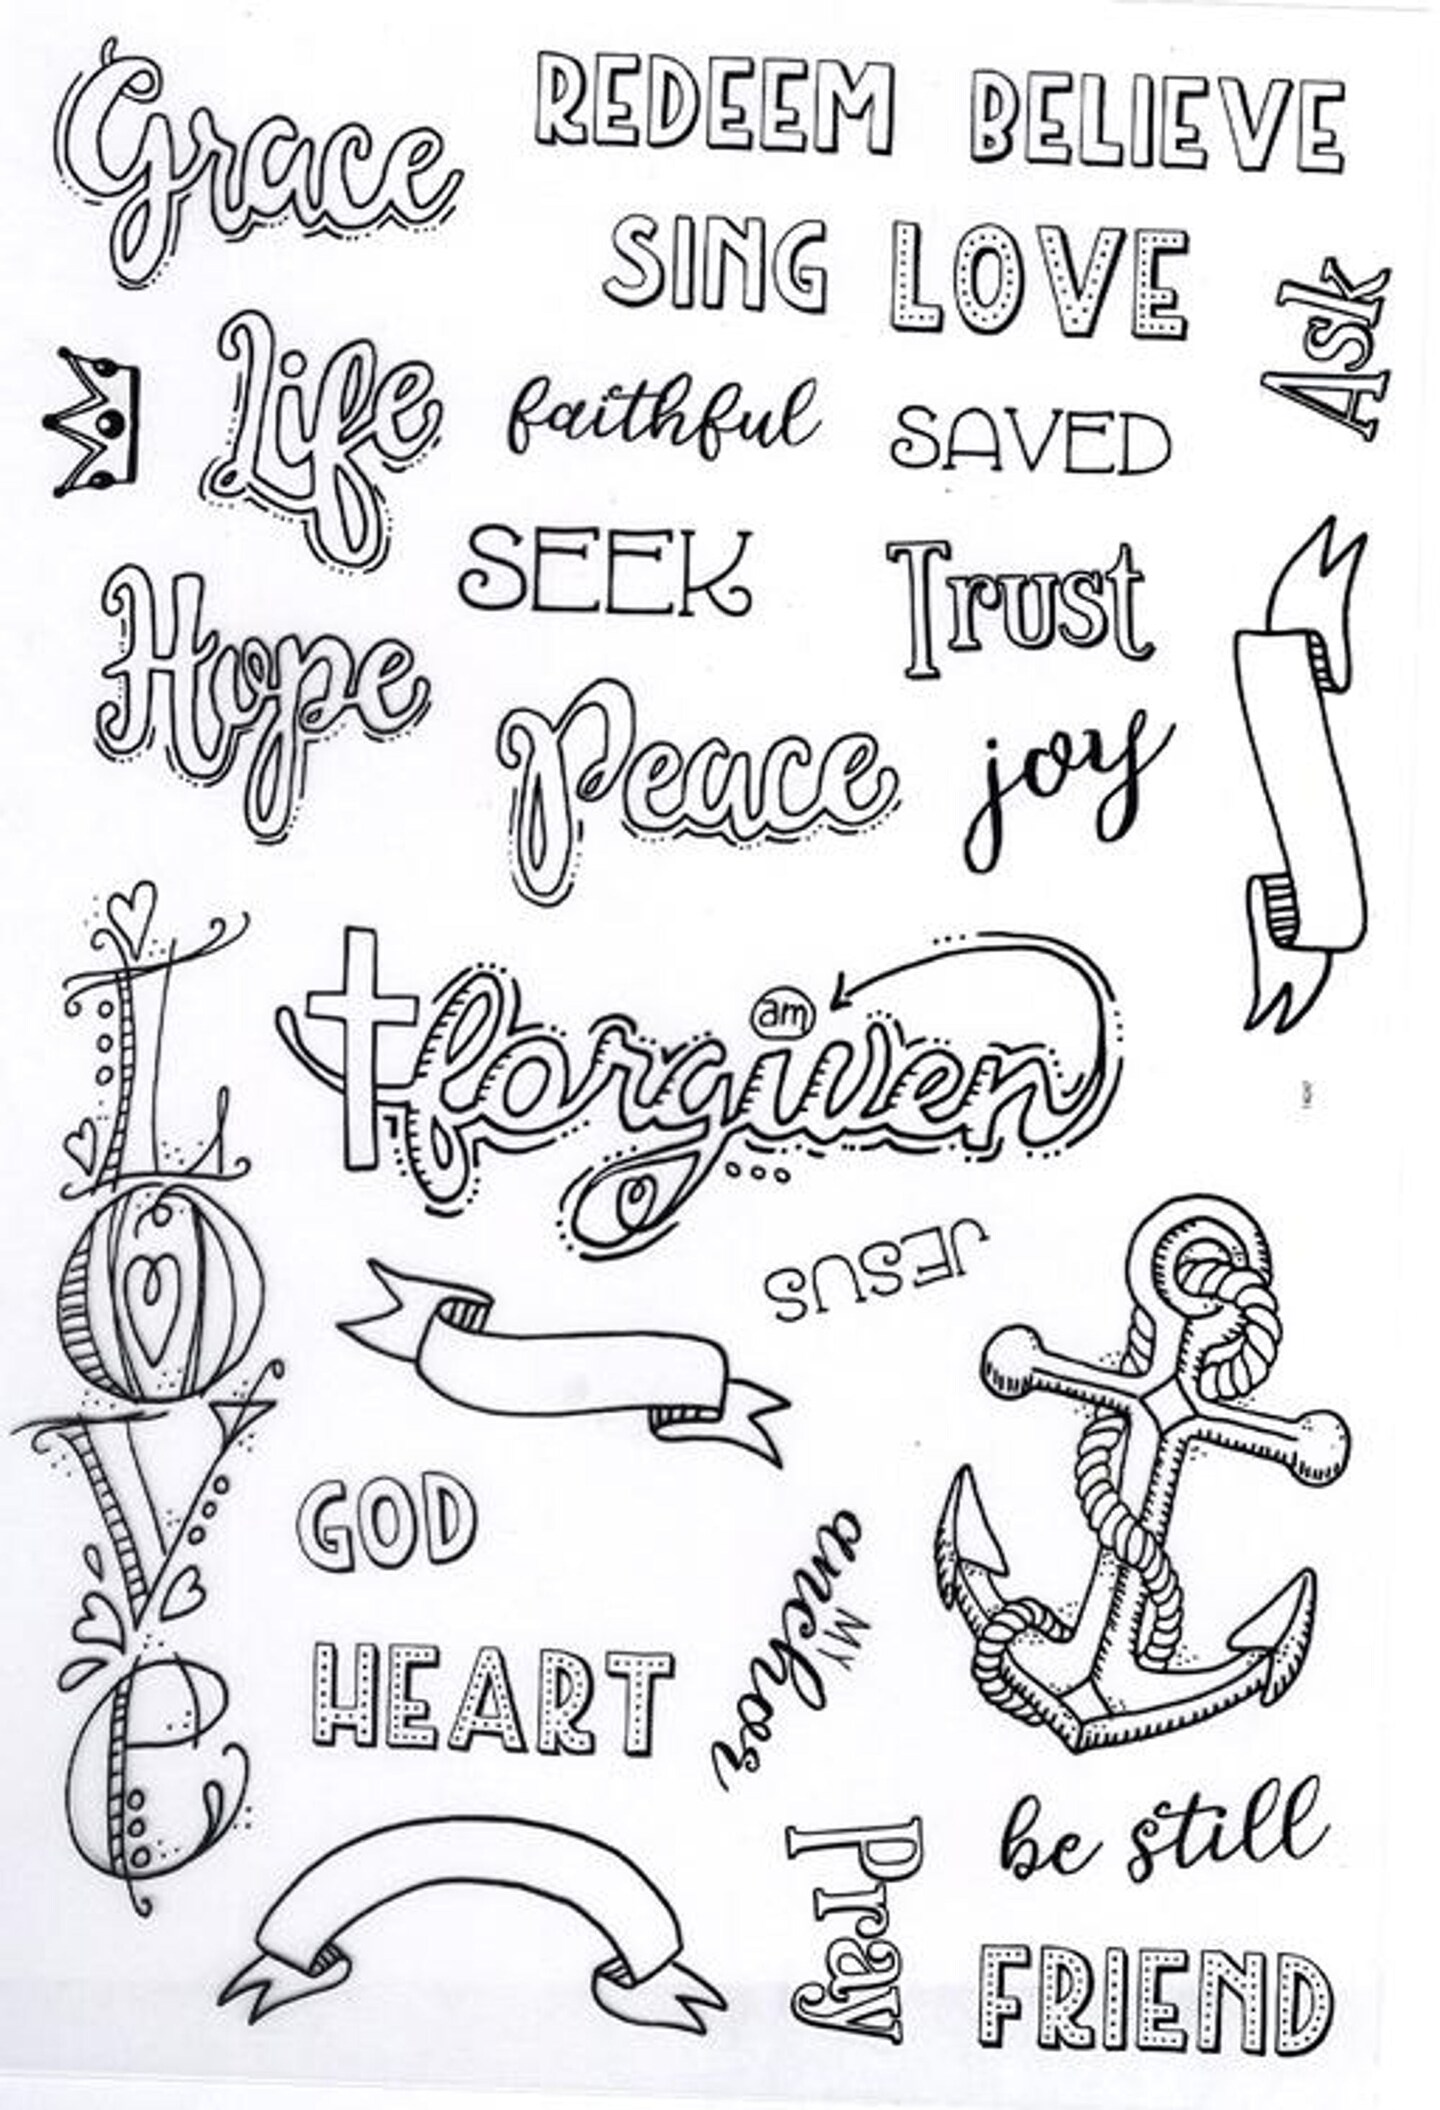 Grace
REDEEM
BELIEVE
SING
LOVE
Ask
Life
faithful
SAVED
SEEK
Trust
Hope
Peace
joy
LOVe
I am forgiven
JESUS
GOD
MY anchor
HEART
be still
Pray
FRIEND